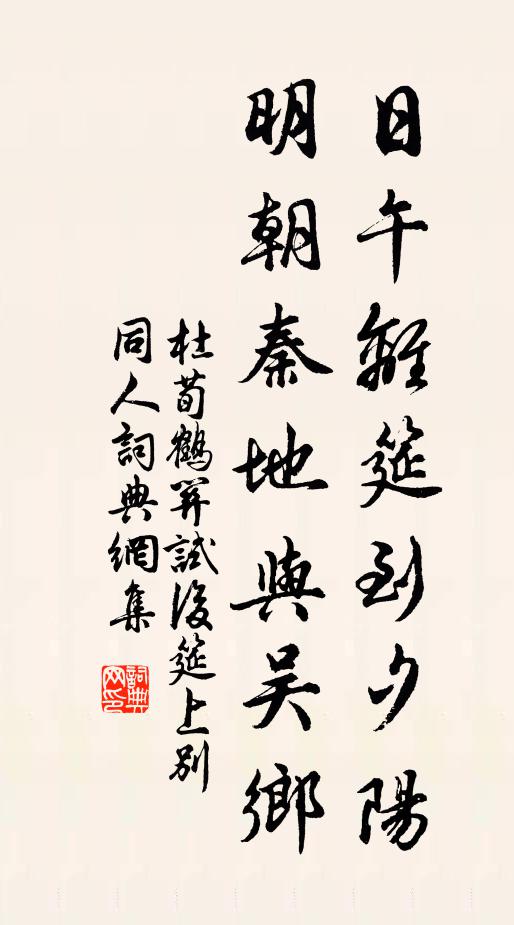 日午離筵到夕陽
明朝秦地與吳鄉
杜荀鶴罷試後筵上別
同人詞典網集
詞典網印